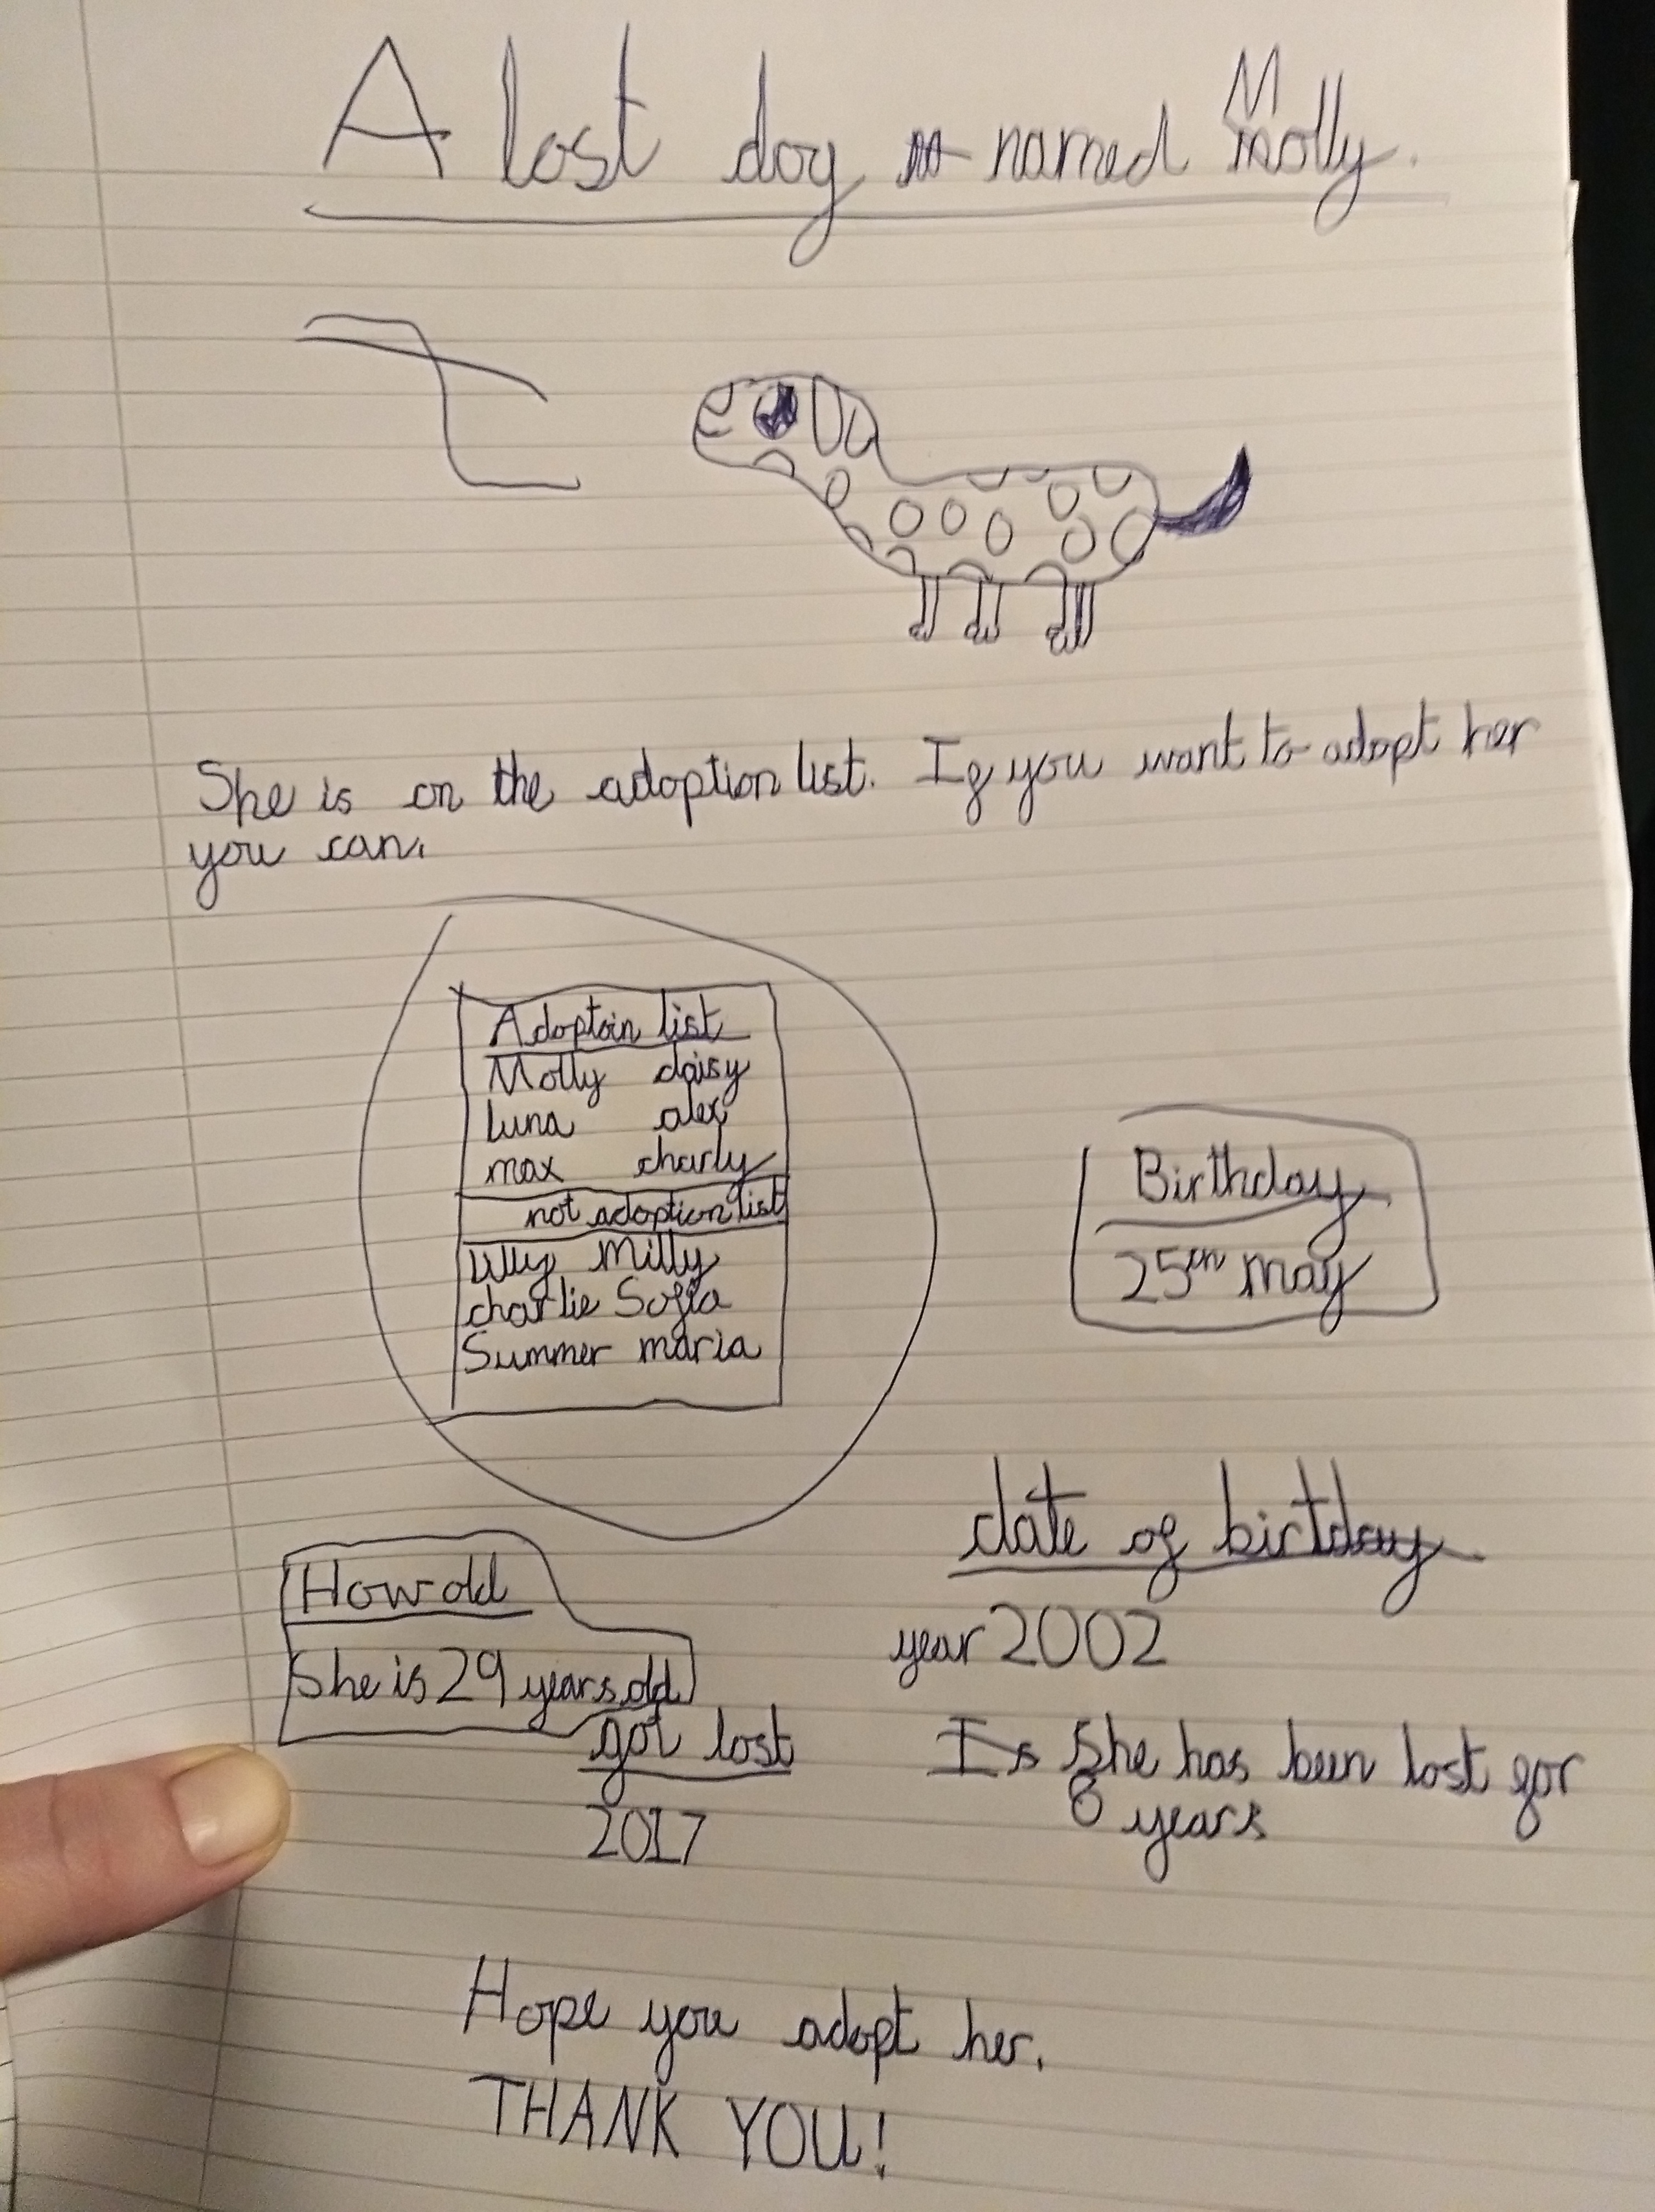 A lost dog named Molly.
She is on the adoption list. If you want to adopt her
you can.
Adoptoin list
Molly daisy
luna alex
max charly
not adoption list
Lilly Milly
charlie Sofia
Summer maria
Birthday
25th may
date of birtday
year 2002
How old
She is 29 years old
got lost
2017
Is She has been lost for
8 years
Hope you adopt her.
THANK YOU!